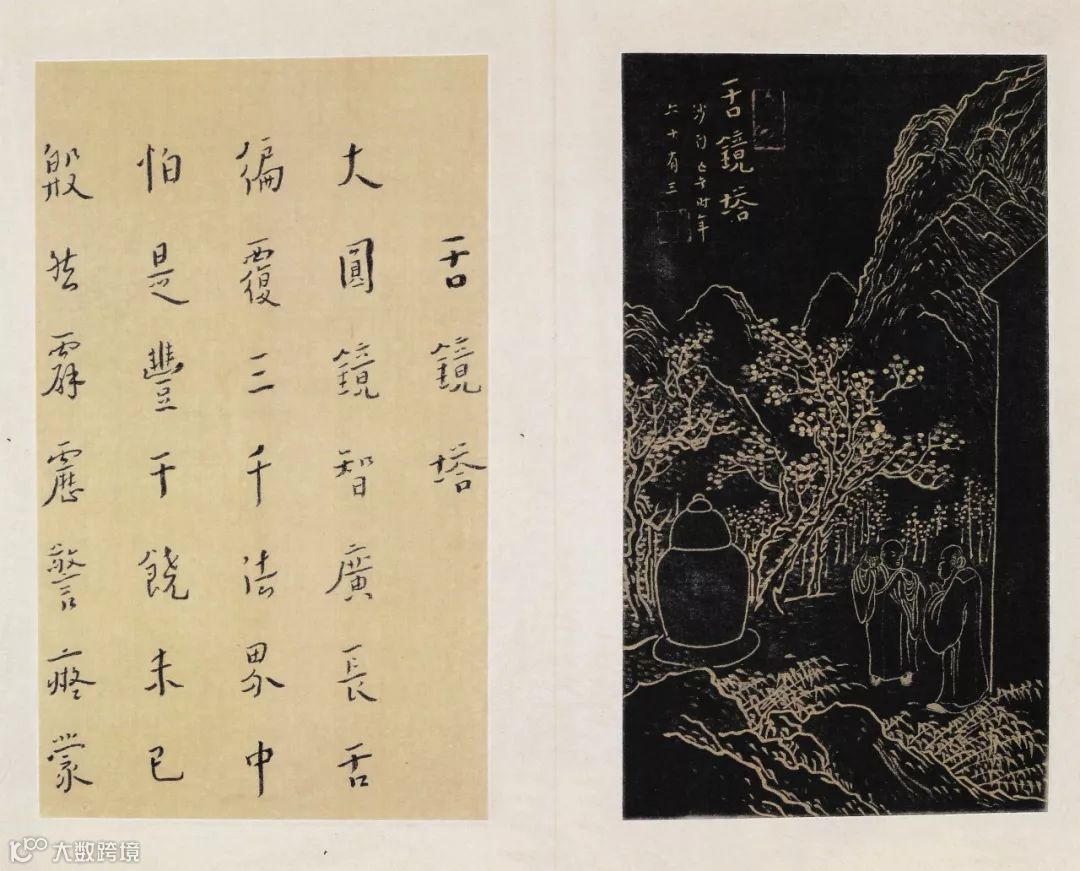 舌鏡塔
沙門時年
六十有三
舌鏡塔
大圓鏡智廣長舌
徧覆三千法界中
怕是豐干饒未已
殷然霹靂警蒙
大数跨境